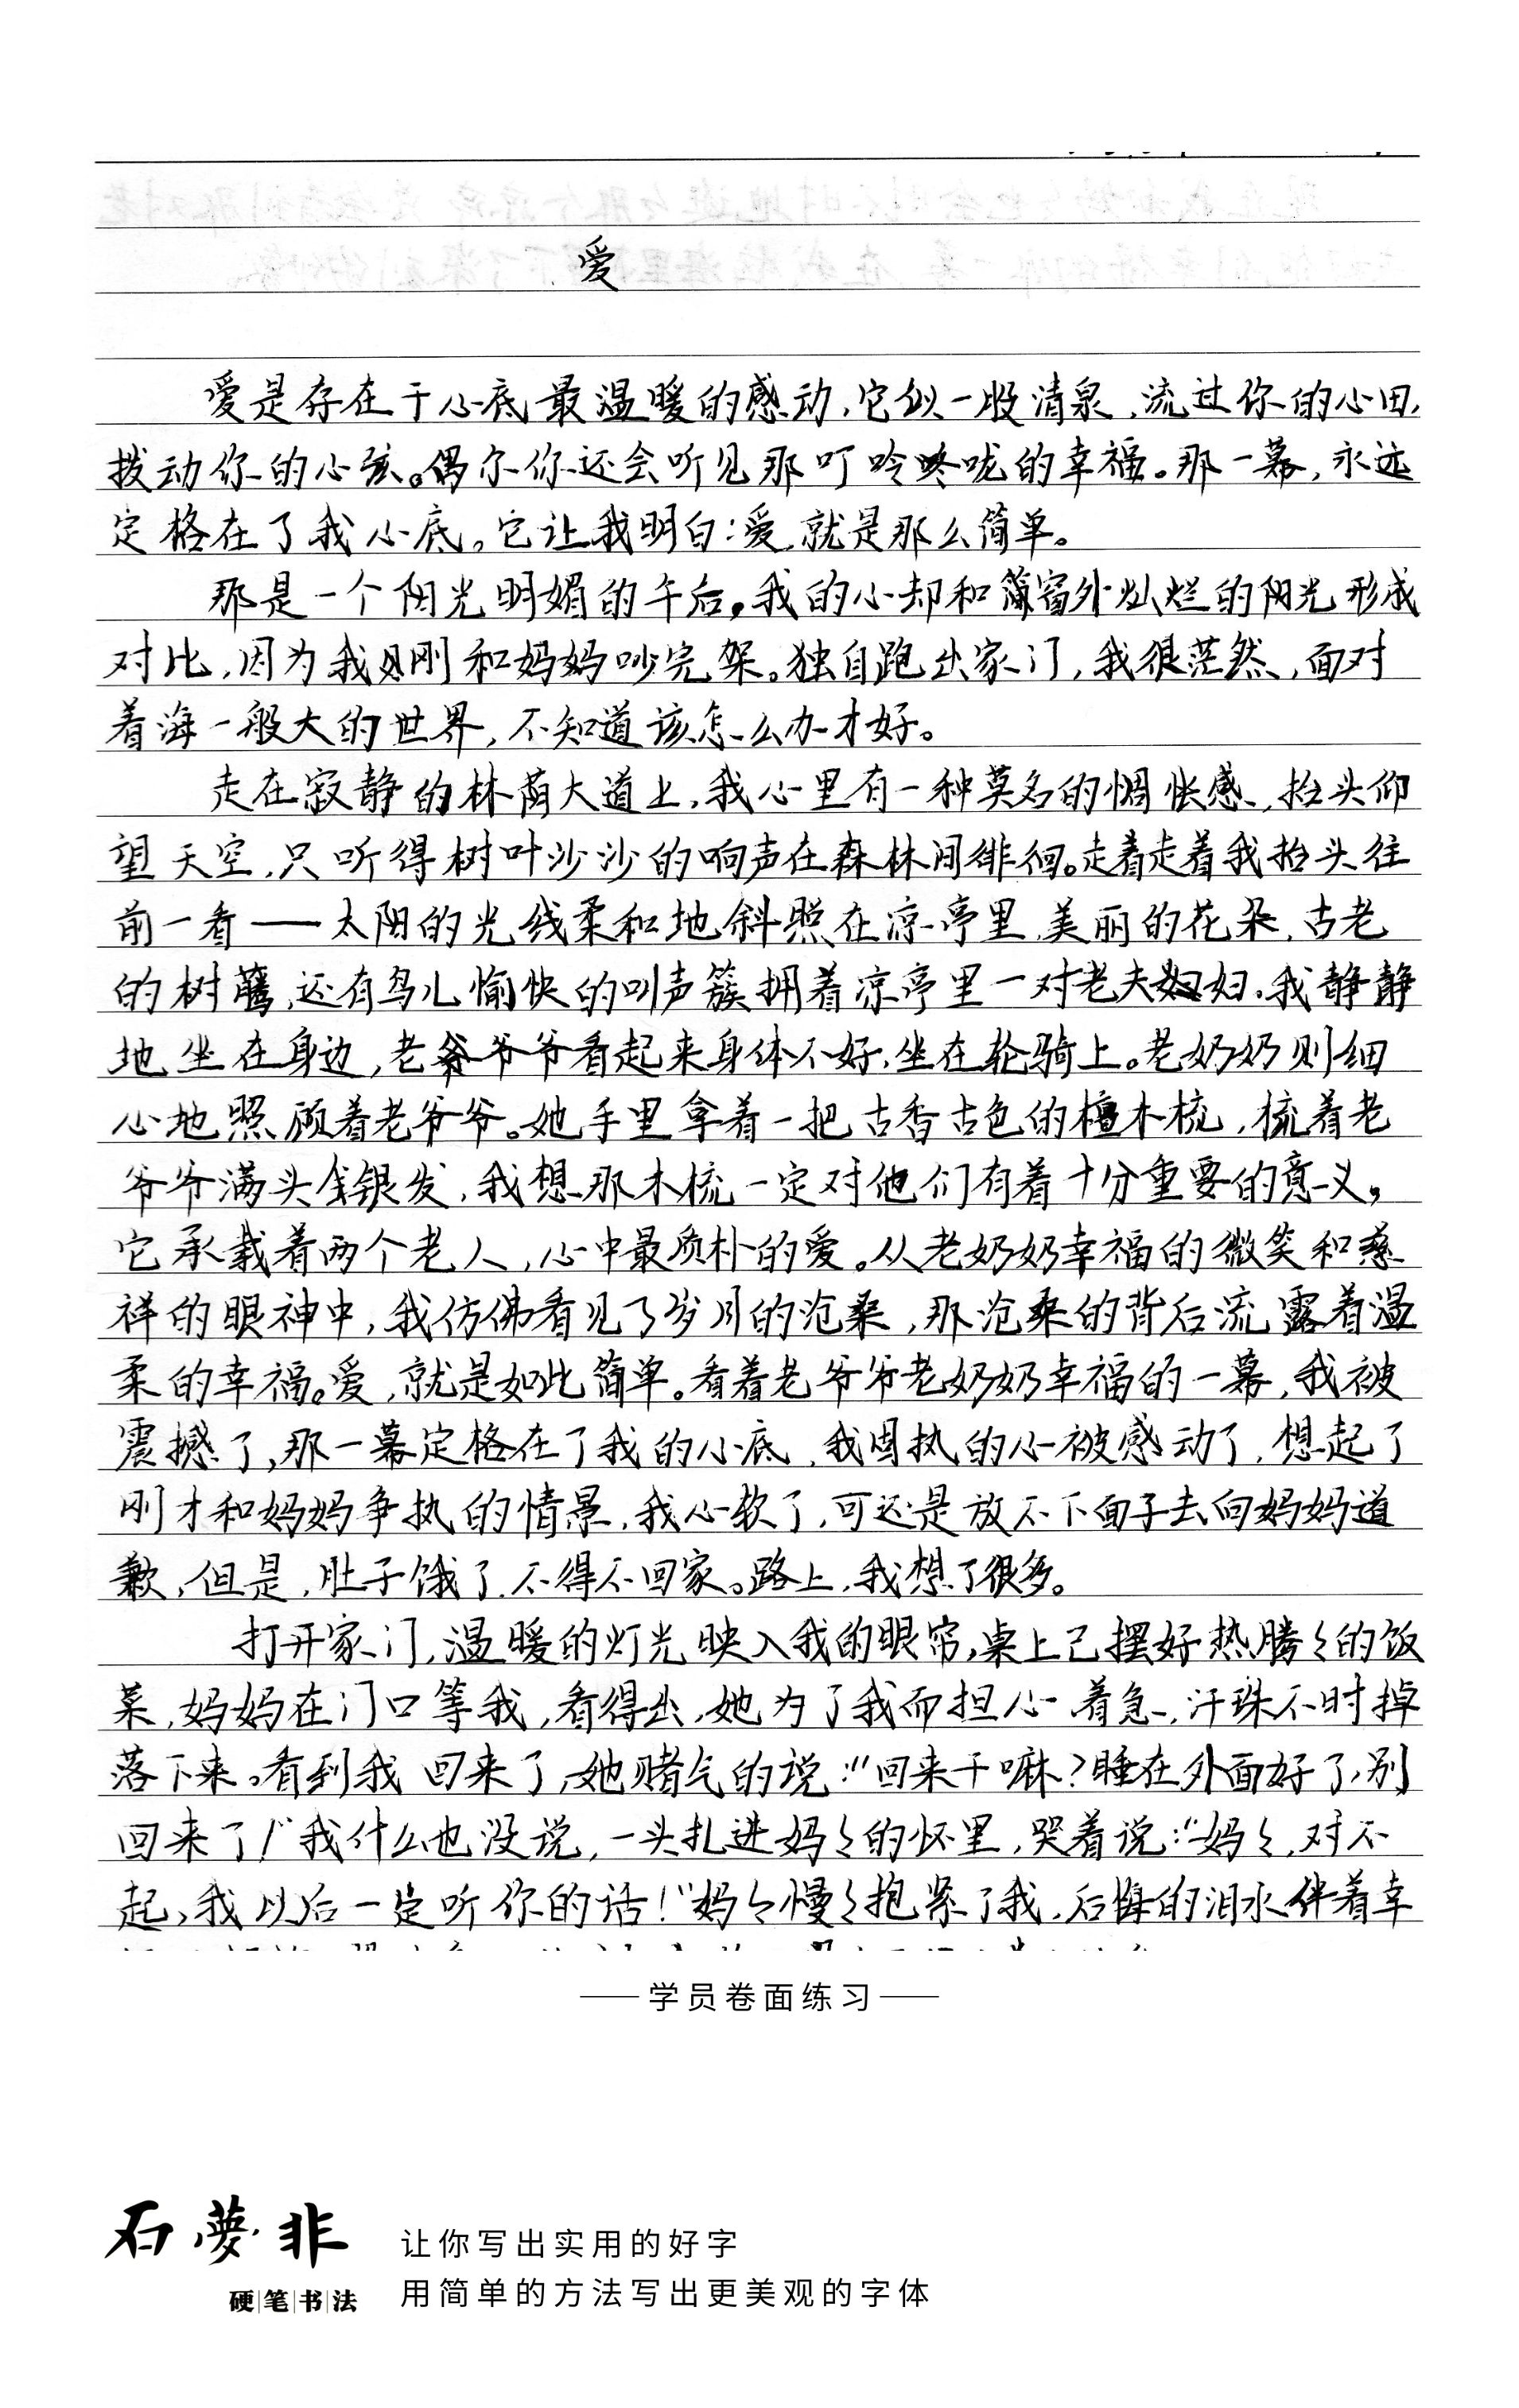 爱
爱是存在于心底最温暖的感动,它似一股清泉,流过你的心田,
拨动你的心弦。偶尔你还会听见那叮呤咚咙的幸福。那一幕,永远
定格在了我心底。它让我明白:爱,就是那么简单。
那是一个阳光明媚的午后,我的心却和窗外灿烂的阳光形成
对比,因为我刚和妈妈吵完架。独自跑出家门,我很茫然,面对
着海一般大的世界,不知道该怎么办才好。
走在寂静的林荫大道上,我心里有一种莫名的惆怅感,抬头仰
望天空,只听得树叶沙沙的响声在森林间徘徊。走着走着我抬头往
前一看——太阳的光线柔和地斜照在凉亭里,美丽的花朵,古老
的树,还有鸟儿愉快的叫声簇拥着凉亭里一对老夫妇。我静静
地坐在身边,老爷爷看起来身体不好,坐在轮骑上。老奶奶则细
心地照顾着老爷爷。她手里拿着一把古香古色的檀木梳,梳着老
爷爷满头银发,我想那木梳一定对他们有着十分重要的意义,
它承载着两个老人,心中最质朴的爱。从老奶奶幸福的微笑和慈
祥的眼神中,我仿佛看见了岁月的沧桑,那沧桑的背后流露着温
柔的幸福。爱,就是如此简单。看着老爷爷老奶奶幸福的一幕,我被
震撼了,那一幕定格在了我的心底,我固执的心被感动了,想起了
刚才和妈妈争执的情景,我心软了,可还是放不下面子去向妈妈道
歉,但是,肚子饿了,不得不回家。路上,我想了很多。
打开家门,温暖的灯光映入我的眼帘,桌上已摆好热腾々的饭
菜,妈妈在门口等我,看得出,她为了我而担心着急,汗珠不时掉
落下来。看到我回来了,她赌气的说:“回来干嘛?睡在外面好了,别
回来了!”我什么也没说,一头扎进妈々的怀里,哭着说:“妈々,对不
起,我以后一定听你的话!”妈々慢々抱紧了我,后悔的泪水伴着幸
——学员卷面练习——
石夢非
硬笔书法
让你写出实用的好字
用简单的方法写出更美观的字体